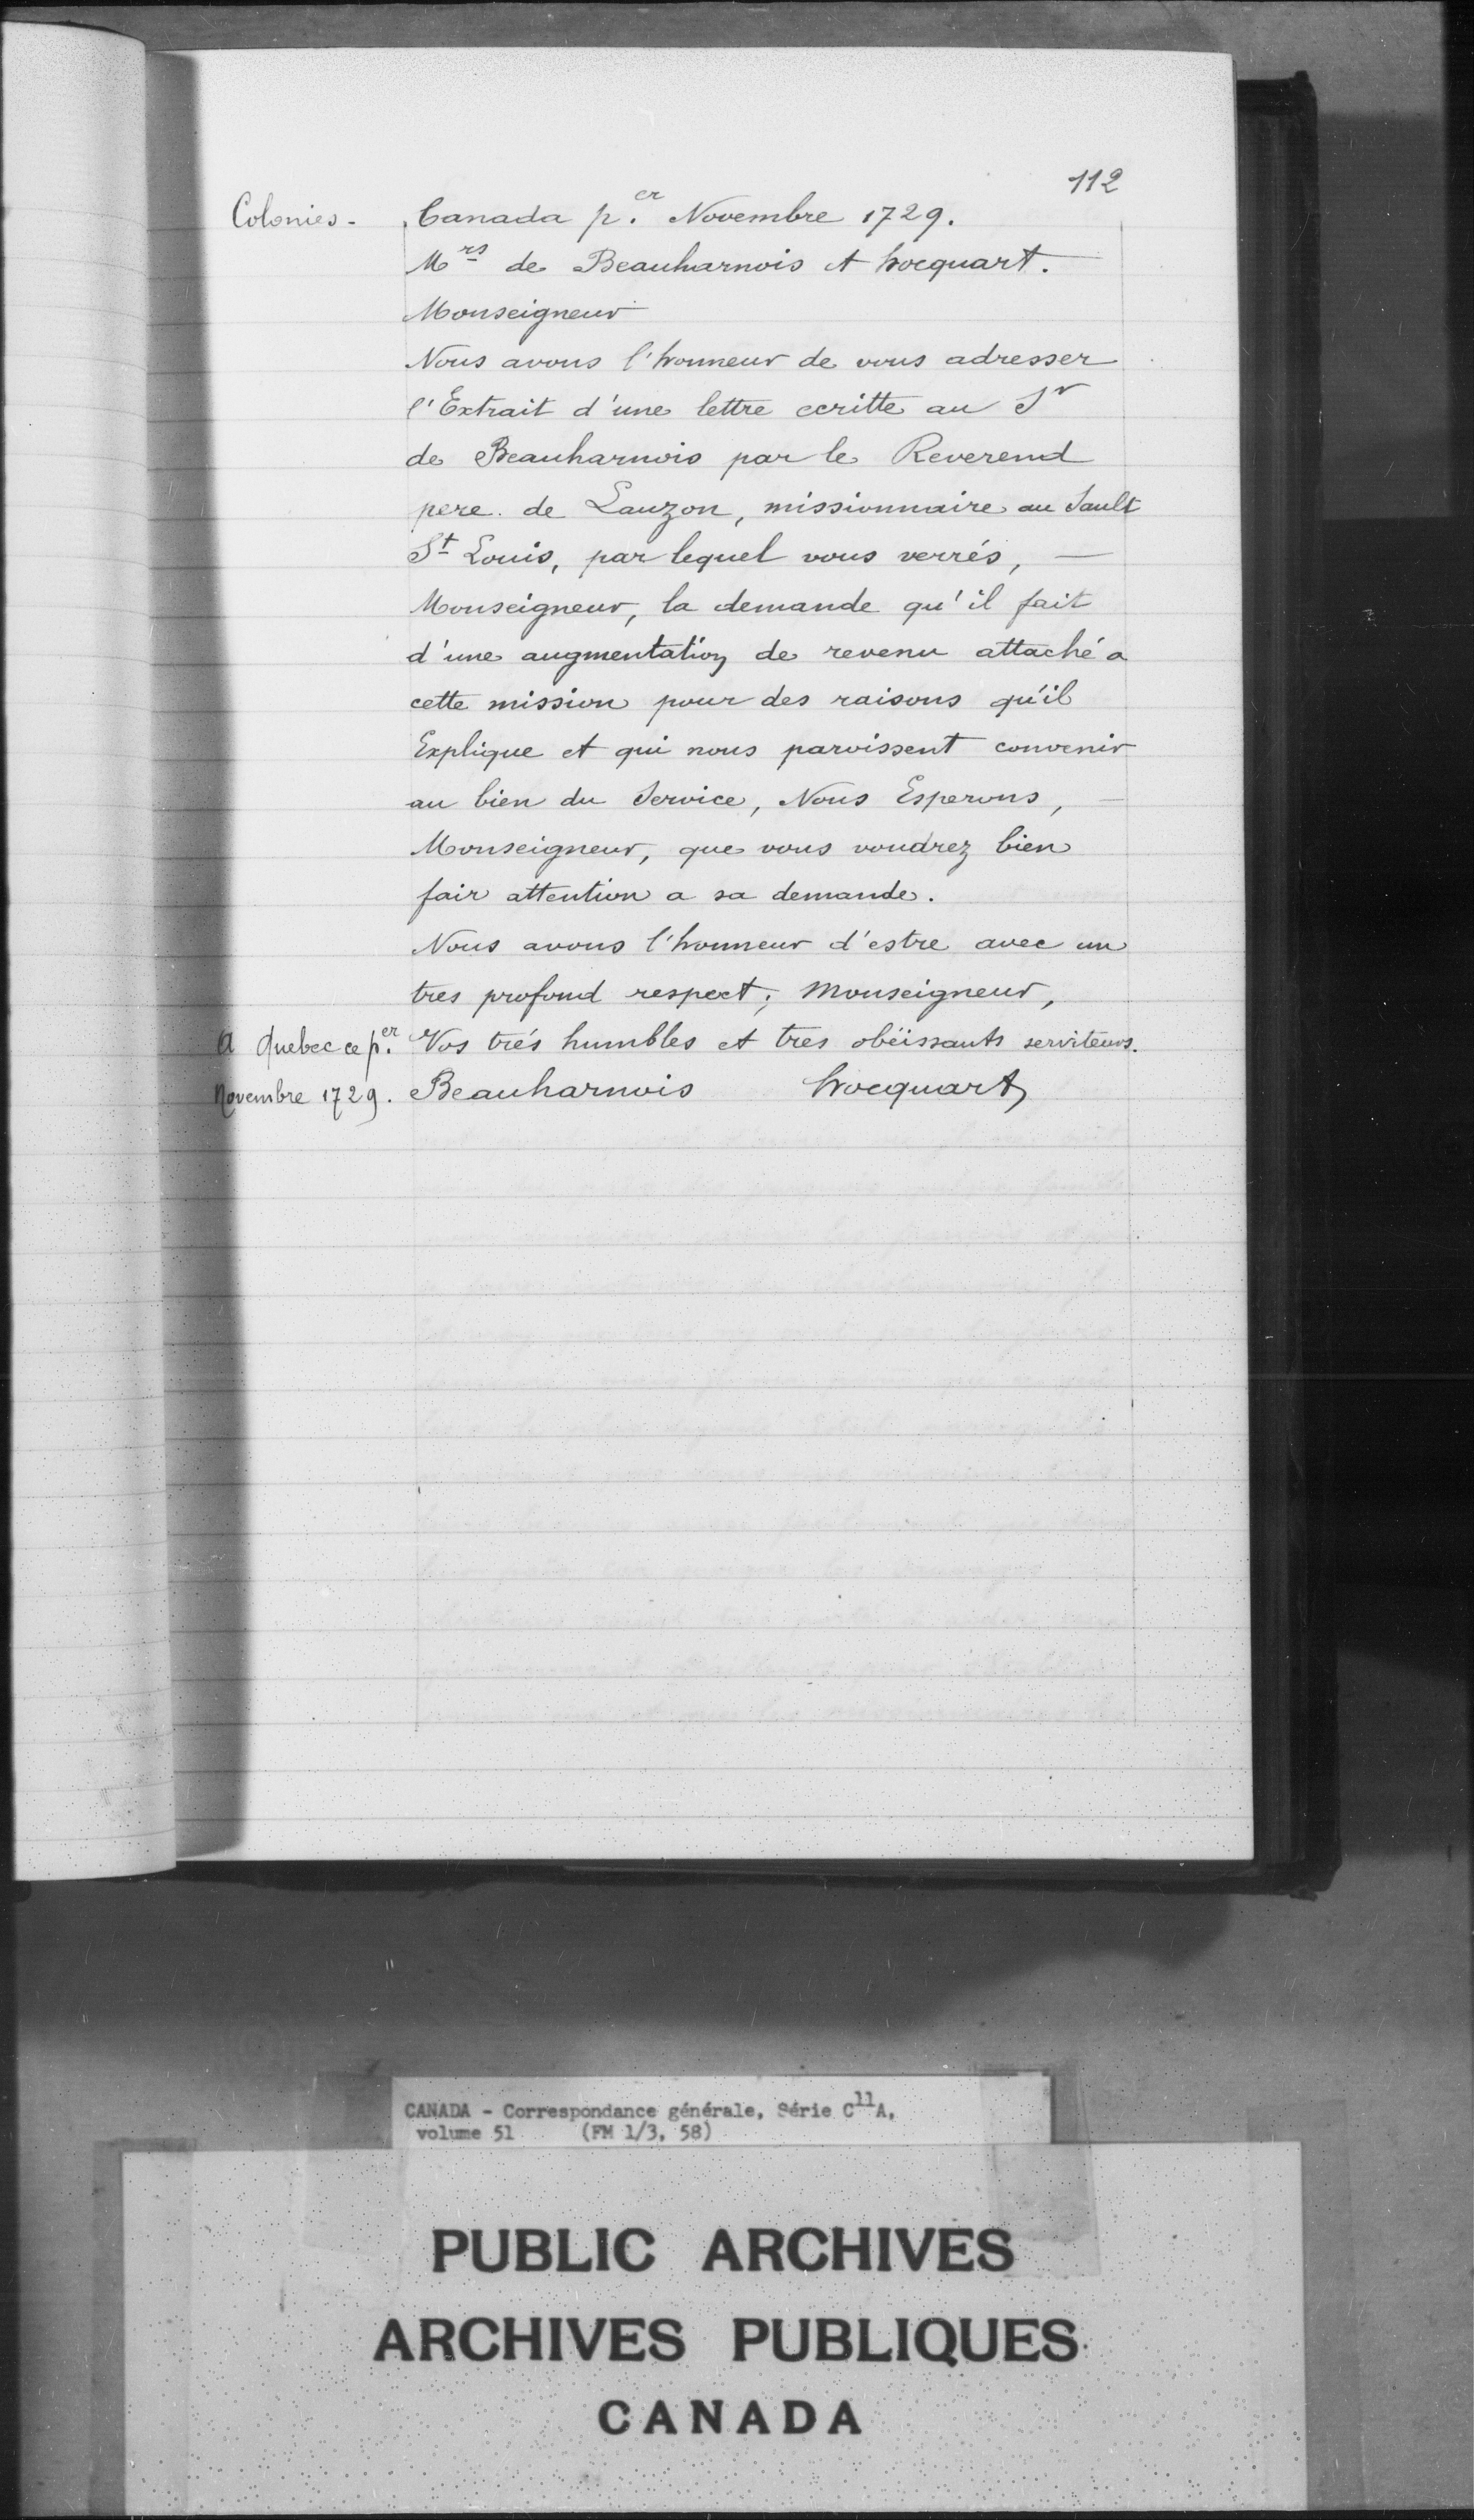 112
Colonies - Canada p.er Novembre 1729.
Mrs de Beauharnois et hocquart.
Monseigneur
Nous avons l'honneur de vous adresser
l'Extrait d'une lettre ecritte au Sr
de Beauharnois par le Reverend
pere de Lauzon, missionnaire au Sault
St Louis, par lequel vous verrés, —
Monseigneur, la demande qu'il fait
d'une augmentation de revenu attaché a
cette mission pour des raisons qu'il
Explique et qui nous paroissent convenir
au bien du Service, Nous Esperons, —
Monseigneur, que vous voudrez bien
fair attention a sa demande.
Nous avons l'honneur d'estre avec un
tres profond respect, Monseigneur,
A Quebec ce p.er Vos trés humbles et tres obëissants serviteurs.
Novembre 1729. Beauharnois hocquart
CANADA - Correspondance générale, Série C11A,
volume 51 (FM 1/3, 58)
PUBLIC ARCHIVES
ARCHIVES PUBLIQUES
CANADA